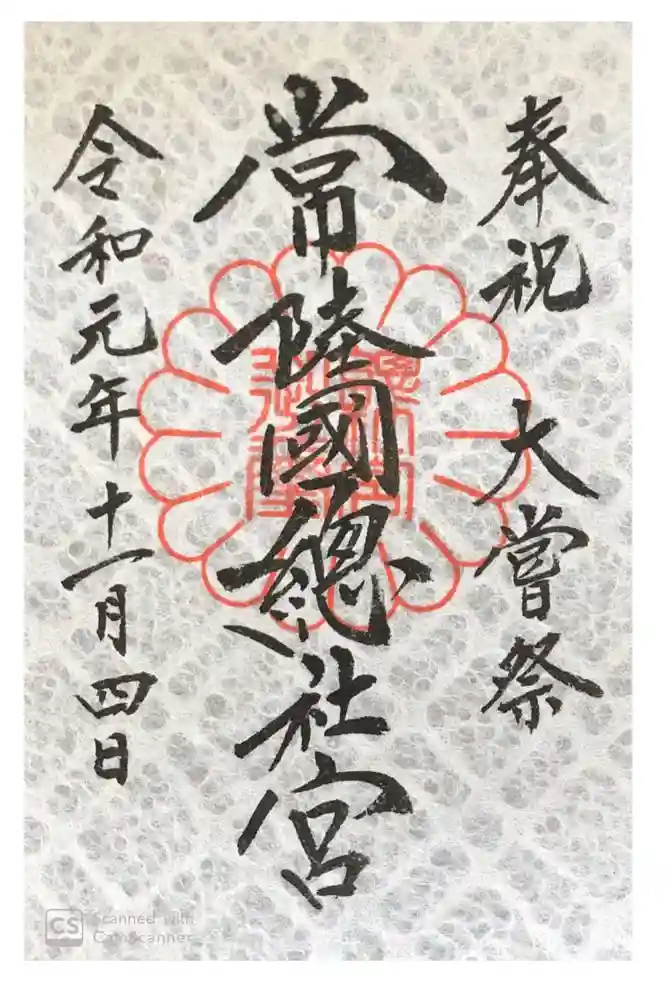 奉祝 大嘗祭
常陸國總社宮
令和元年十一月四日
CS Scanned with
CamScanner